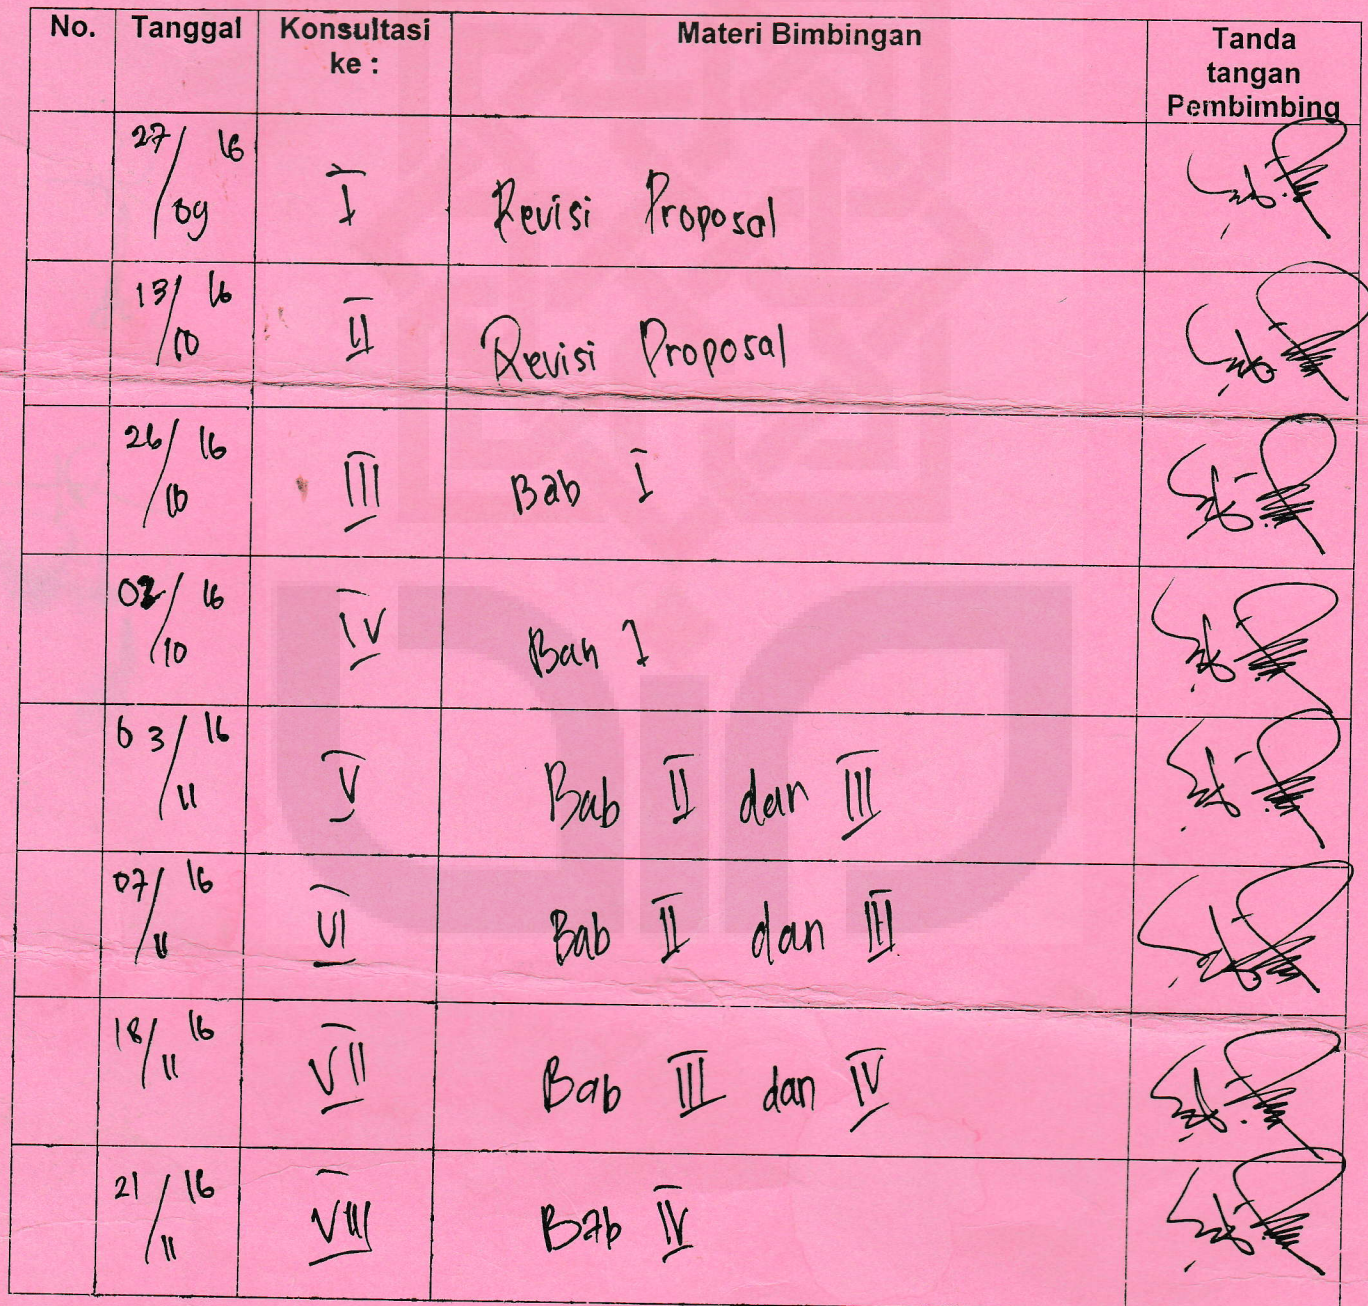 No. Tanggal Konsultasi ke : Materi Bimbingan Tanda tangan Pembimbing
27/09 16 I Revisi Proposal
13/10 16 II Revisi Proposal
26/10 16 III Bab I
02/10 16 IV Bab I
03/11 16 V Bab II dan III
07/11 16 VI Bab II dan III
18/11 16 VII Bab III dan IV
21/11 16 VIII Bab IV